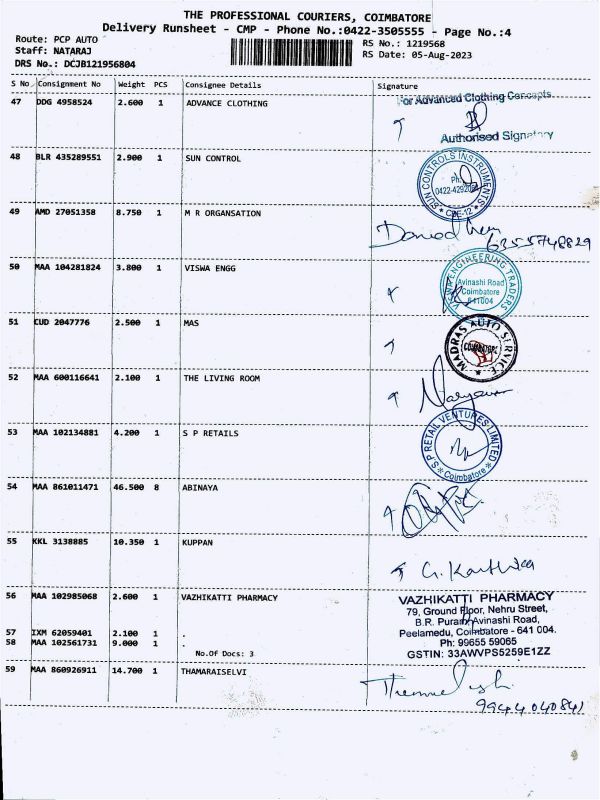 THE PROFESSIONAL COURIERS, COIMBATORE
Delivery Runsheet - CMP - Phone No.:0422-3505555 - Page No.:4
Route: PCP AUTO
RS No.: 1219568
Staff: NATARAJ
RS Date: 05-Aug-2023
DRS No.: DCJB121956804
S No Consignment No Weight PCS Consignee Details Signature
47 DDG 4958524 2.600 1 ADVANCE CLOTHING
For Advanced Clothing Concepts
Authorised Signatory
48 BLR 435289551 2.900 1 SUN CONTROL
SUN CONTROLS INSTRUMENTS
Ph:
CBE-12
49 AMD 27051358 8.750 1 M R ORGANSATION
6355748829
50 MAA 104281824 3.800 1 VISWA ENGG
ENGINEERING TRADERS
Avinashi Road
Coimbatore
641004
51 CUD 2047776 2.500 1 MAS
MADRAS AUTO SERVICE
COIMBATORE
52 MAA 600116641 2.100 1 THE LIVING ROOM
53 MAA 102134881 4.200 1 S P RETAILS
S.P RETAIL VENTURES LIMITED
Coimbatore
54 MAA 861011471 46.500 8 ABINAYA
55 KKL 3138885 10.350 1 KUPPAN
G. Karthika
56 MAA 102985068 2.600 1 VAZHIKATTI PHARMACY
VAZHIKATTI PHARMACY
79, Ground Floor, Nehru Street,
B.R. Puram, Avinashi Road,
Peelamedu, Coimbatore - 641 004.
Ph: 99655 59065
GSTIN: 33AWVPS5259E1ZZ
57 IXM 62059401 2.100 1 .
58 MAA 102561731 9.000 1 .
No.Of Docs: 3
59 MAA 860926911 14.700 1 THAMARAISELVI
9944040841